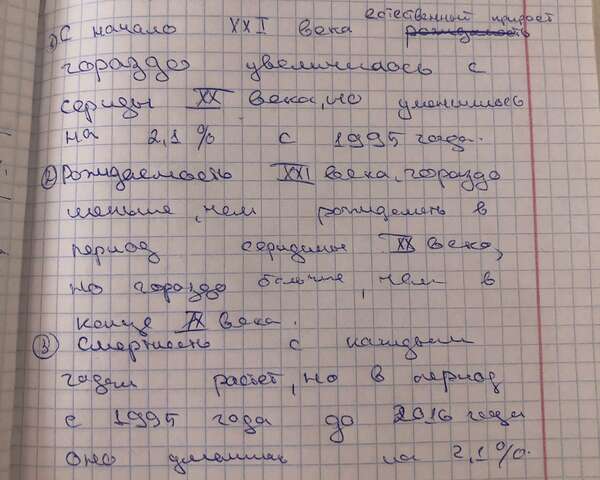 естественный прирост
1) С начало XXI века рождаемость
гораздо увеличилось с
середы XX века, но уменшилось
на 2,1 % с 1995 года.
2) Рождаемость XXI века, гораздо
меньше, чем рождаемень в
период середины XX века,
но гораздо больше, чем в
конце XX века.
3) Смертность с каждым
годом растет, но в период
с 1995 года до 2016 года
оно на 2,1%.